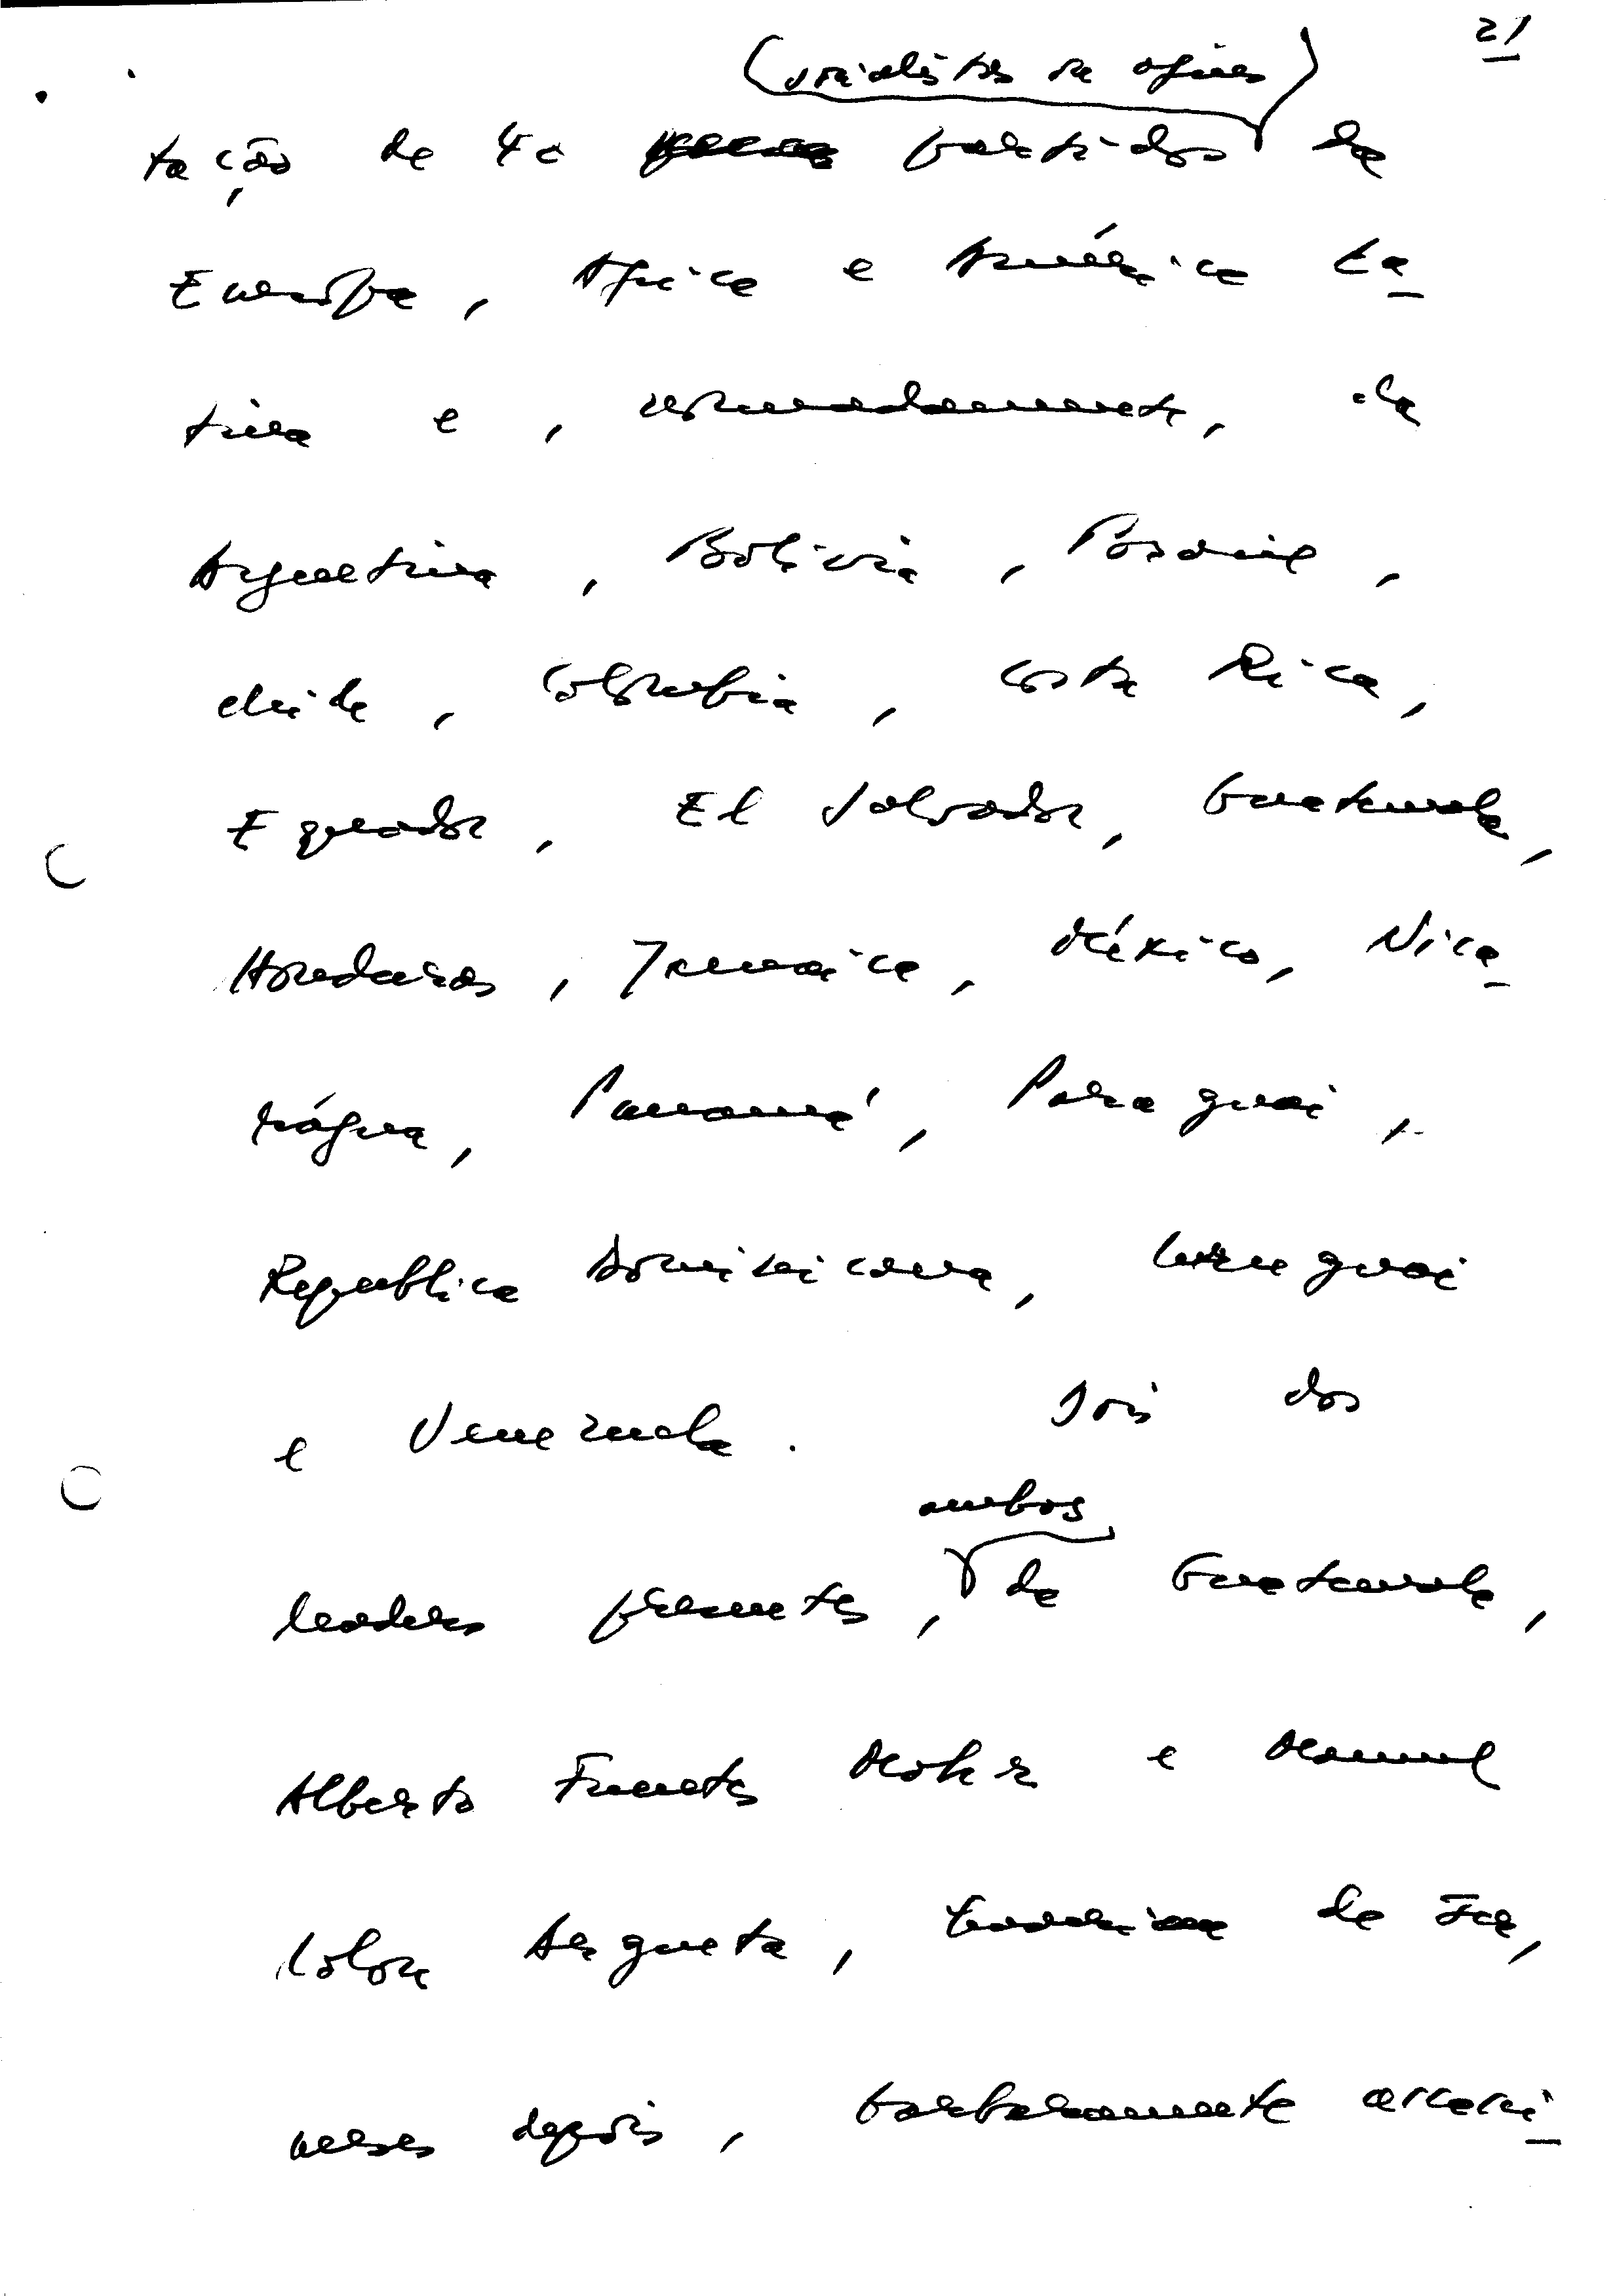 21
(socialistas ou afins)
tação de 40 partidos da
Europa, Africa e América La-
tina e, nomeadamente, da
Argentina, Bolivia, Brasil,
Chile, Colombia, Costa Rica,
Equador, El Salvador, Guatemala,
Honduras, Jamaica, México, Nica-
rágua, Panamá, Paraguai,
Republica Dominicana, Uruguai
e Venezuela. Dois dos
ambos
leaders presentes, da Guatemala,
Alberto Fuentes Mohr e Manuel
Colon Argueta, de
meses depois, barbaramente assassi-